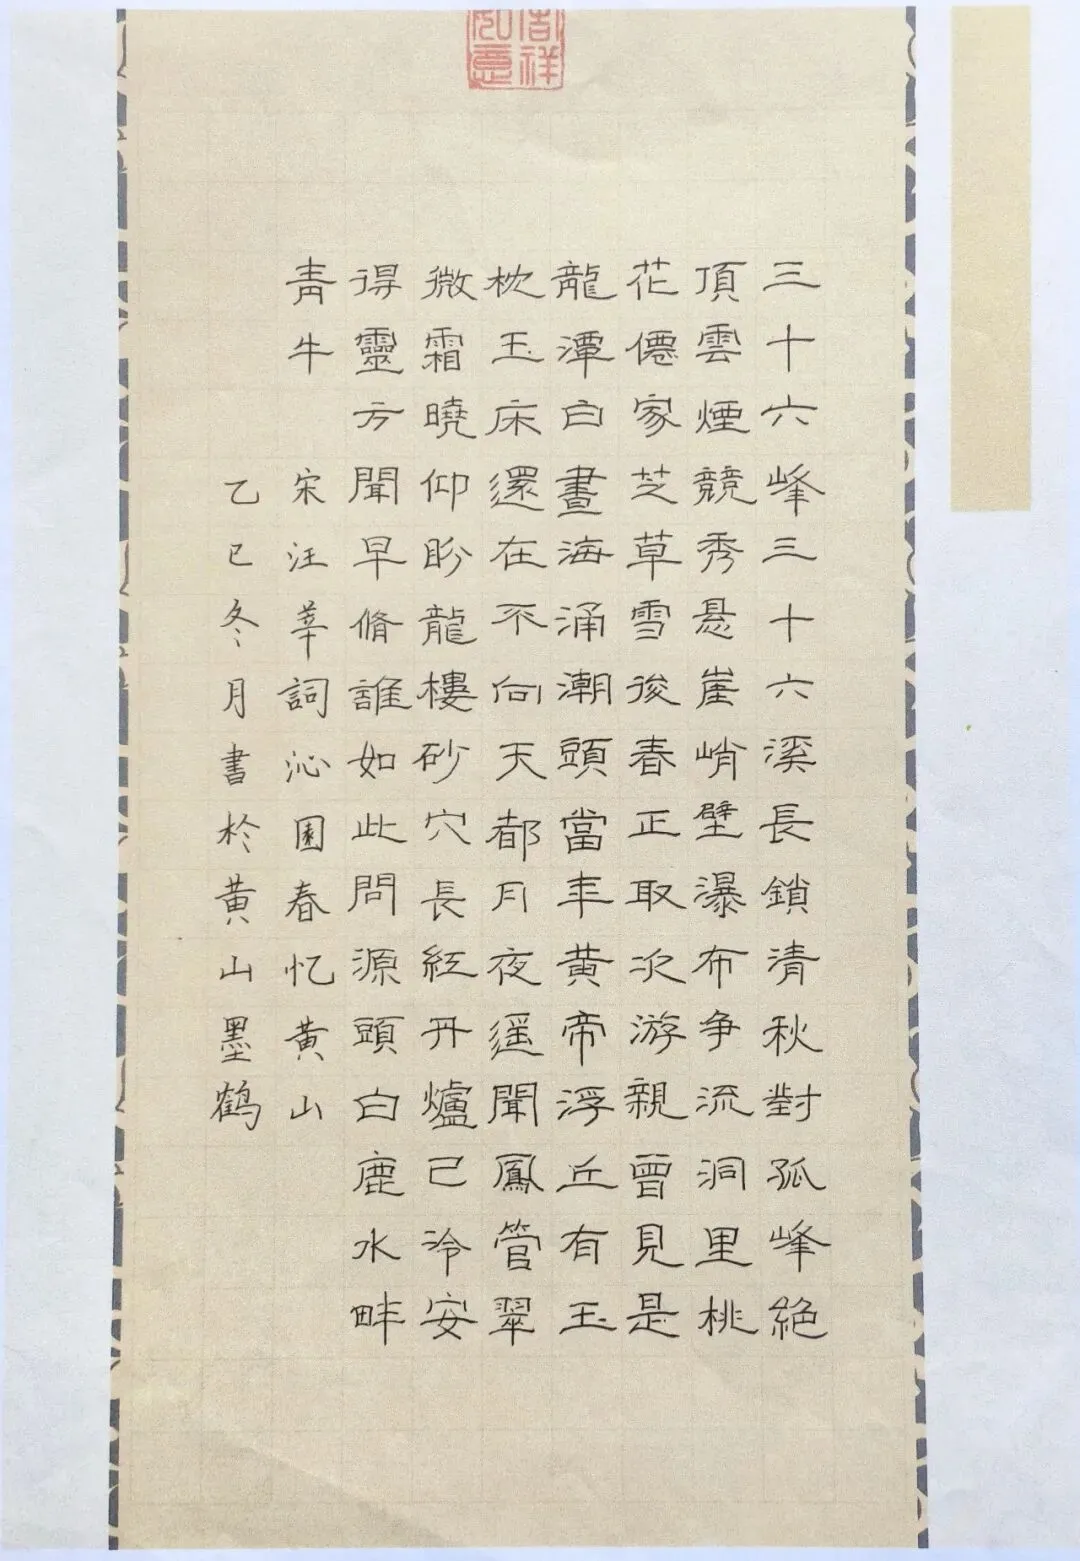 吉祥如意
三十六峰三十六溪長鎖清秋對孤峰絕
頂雲煙競秀悬崖峭壁瀑布争流洞里桃
花僊家芝草雪後春正取次游親曾見是
龍潭白晝海涌潮頭當年黃帝浮丘有玉
枕玉床還在不向天都月夜遥聞鳳管翠
微霜曉仰盼龍樓砂穴長紅丹爐已冷安
得靈方聞早脩誰如此問源頭白鹿水畔
青牛 宋汪莘詞沁園春忆黄山
乙巳冬月書於黄山墨鹤